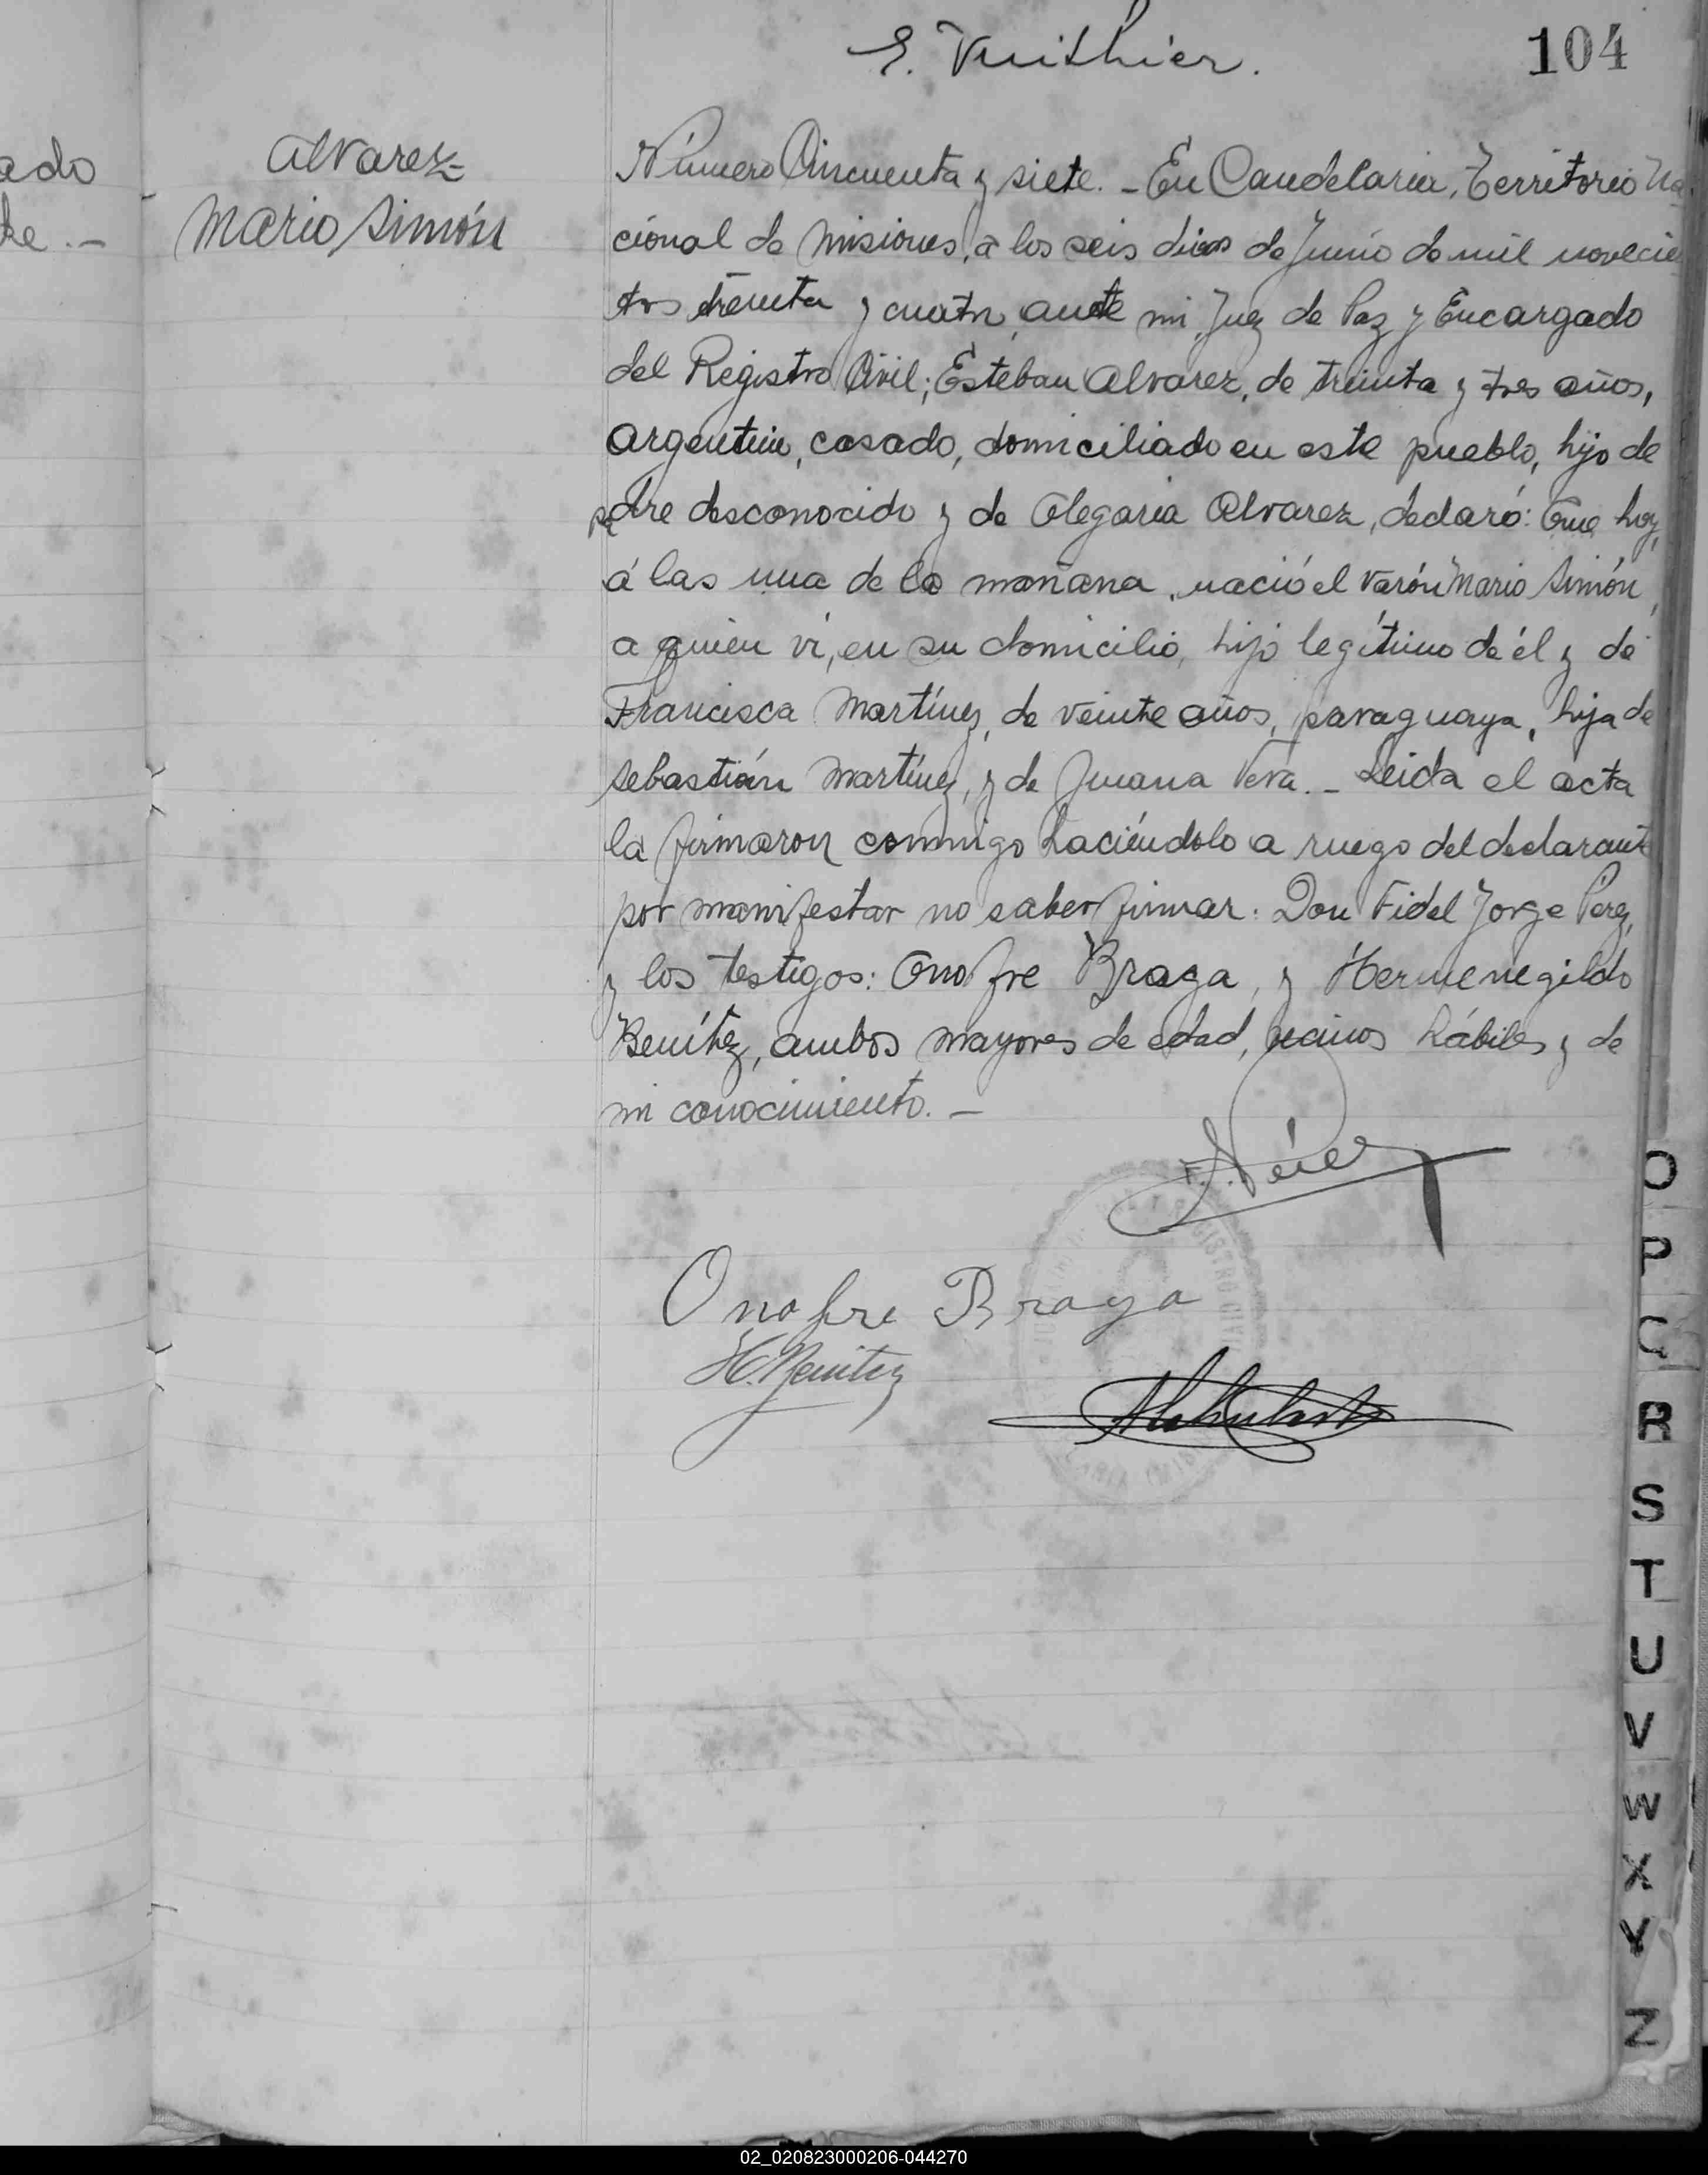 E. Vuithier.
104
ado
Alvarez
Mario Simón
Número Cincuenta y siete. - En Candelaria, Territorio Na
cional de Misiones, a los seis dias de Junio de mil novecien
tos treinta y cuatro, ante mi, Juez de Paz y Encargado
del Registro Civil; Estéban Alvarez, de treinta y tres años,
argentino, casado, domiciliado en este pueblo, hijo de
padre desconocido y de Olegaria Alvarez, declaró: Que hoy,
á las una de la mañana, nació el varón Mario Simón,
a quien ví, en su domicilio, hijo legítimo de él y de
Francisca Martínez, de veinte años, paraguaya, hija de
Sebastián Martínez, y de Juana Vera. - Leida el acta
la firmaron conmigo haciéndolo a ruego del declarante
por manifestar no saber firmar: Don Fidel Jorge Perez,
y los testigos: Onofre Braga, y Hermenegildo
Benítez, ambos mayores de edad, vecinos hábiles y de
mi conocimiento. -
F. J. Pérez
Onofre Braga
H. Benitez
O
P
Q
R
S
T
U
V
W
X
Y
Z
02_020823000206-044270